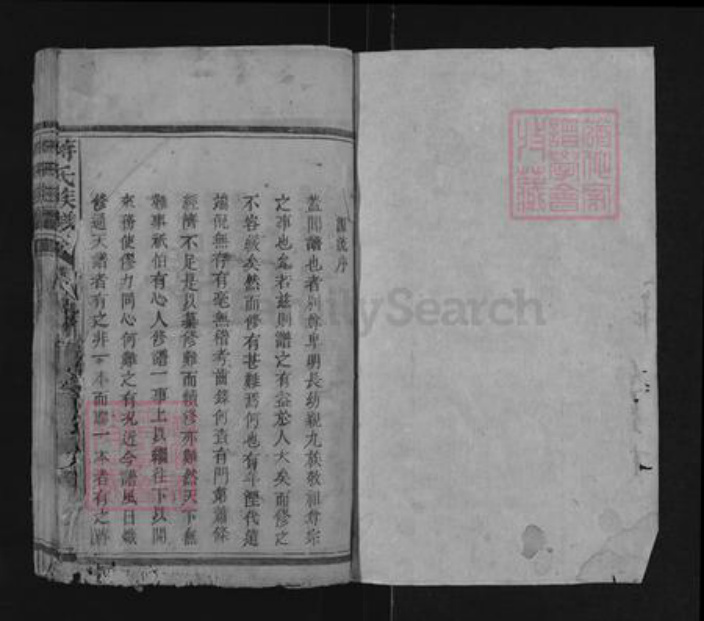 源流序
蓋聞譜也者別尊卑明長幼親九族敬祖尊宗
之事也 若茲則譜之有益於人大矣而修之
不容緩矣然而修有甚難焉何也有年湮代遠
端倪無存有毫無稽考齒錄何查有門第蕭條
經濟不足是以纂修難而續修亦難然天下無
難事祇怕有心人修譜一事上以繼往下以開
來務使僇力同心何難之有況近今譜風日熾
修通天譜者有之非一本而 一本者有之
氏族
FamilySearch
譜學會
收藏